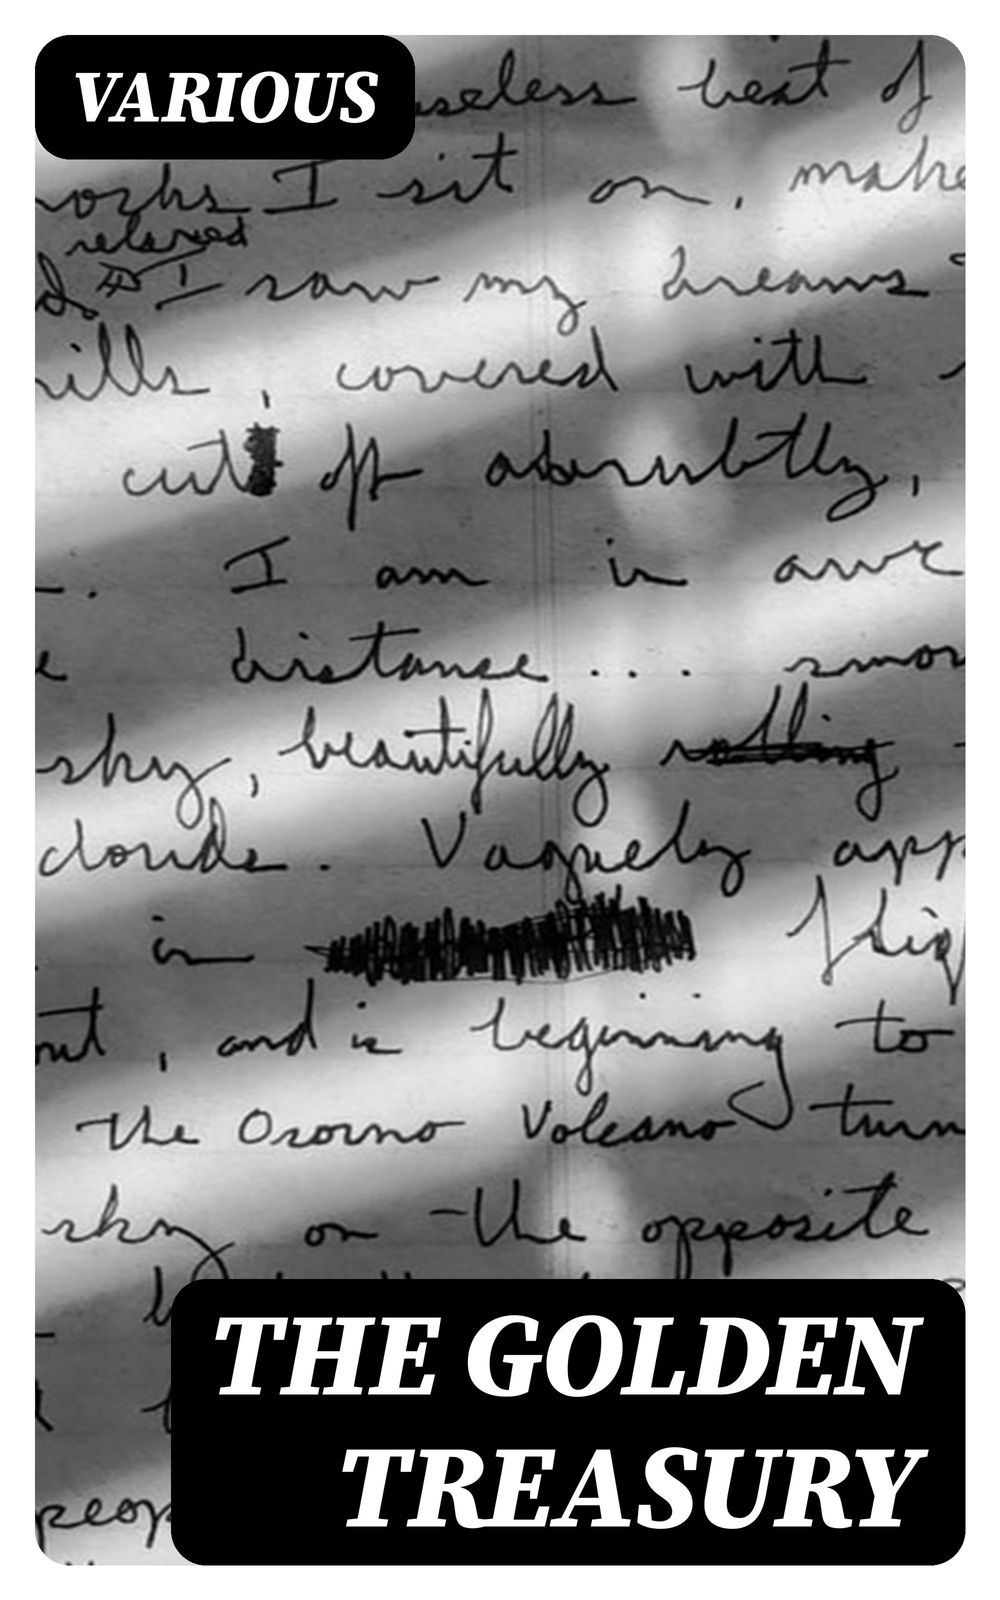 VARIOUS
beat of
I sit on, make
relaxed
I saw my dreams
hills, covered with
cut off abruptly,
. I am in awe
distance ...
sky, beautifully rolling
clouds. Vaguely app
in
out, and is beginning to
the Osorno Volcano turn
sky on the opposite
THE GOLDEN
TREASURY
peop